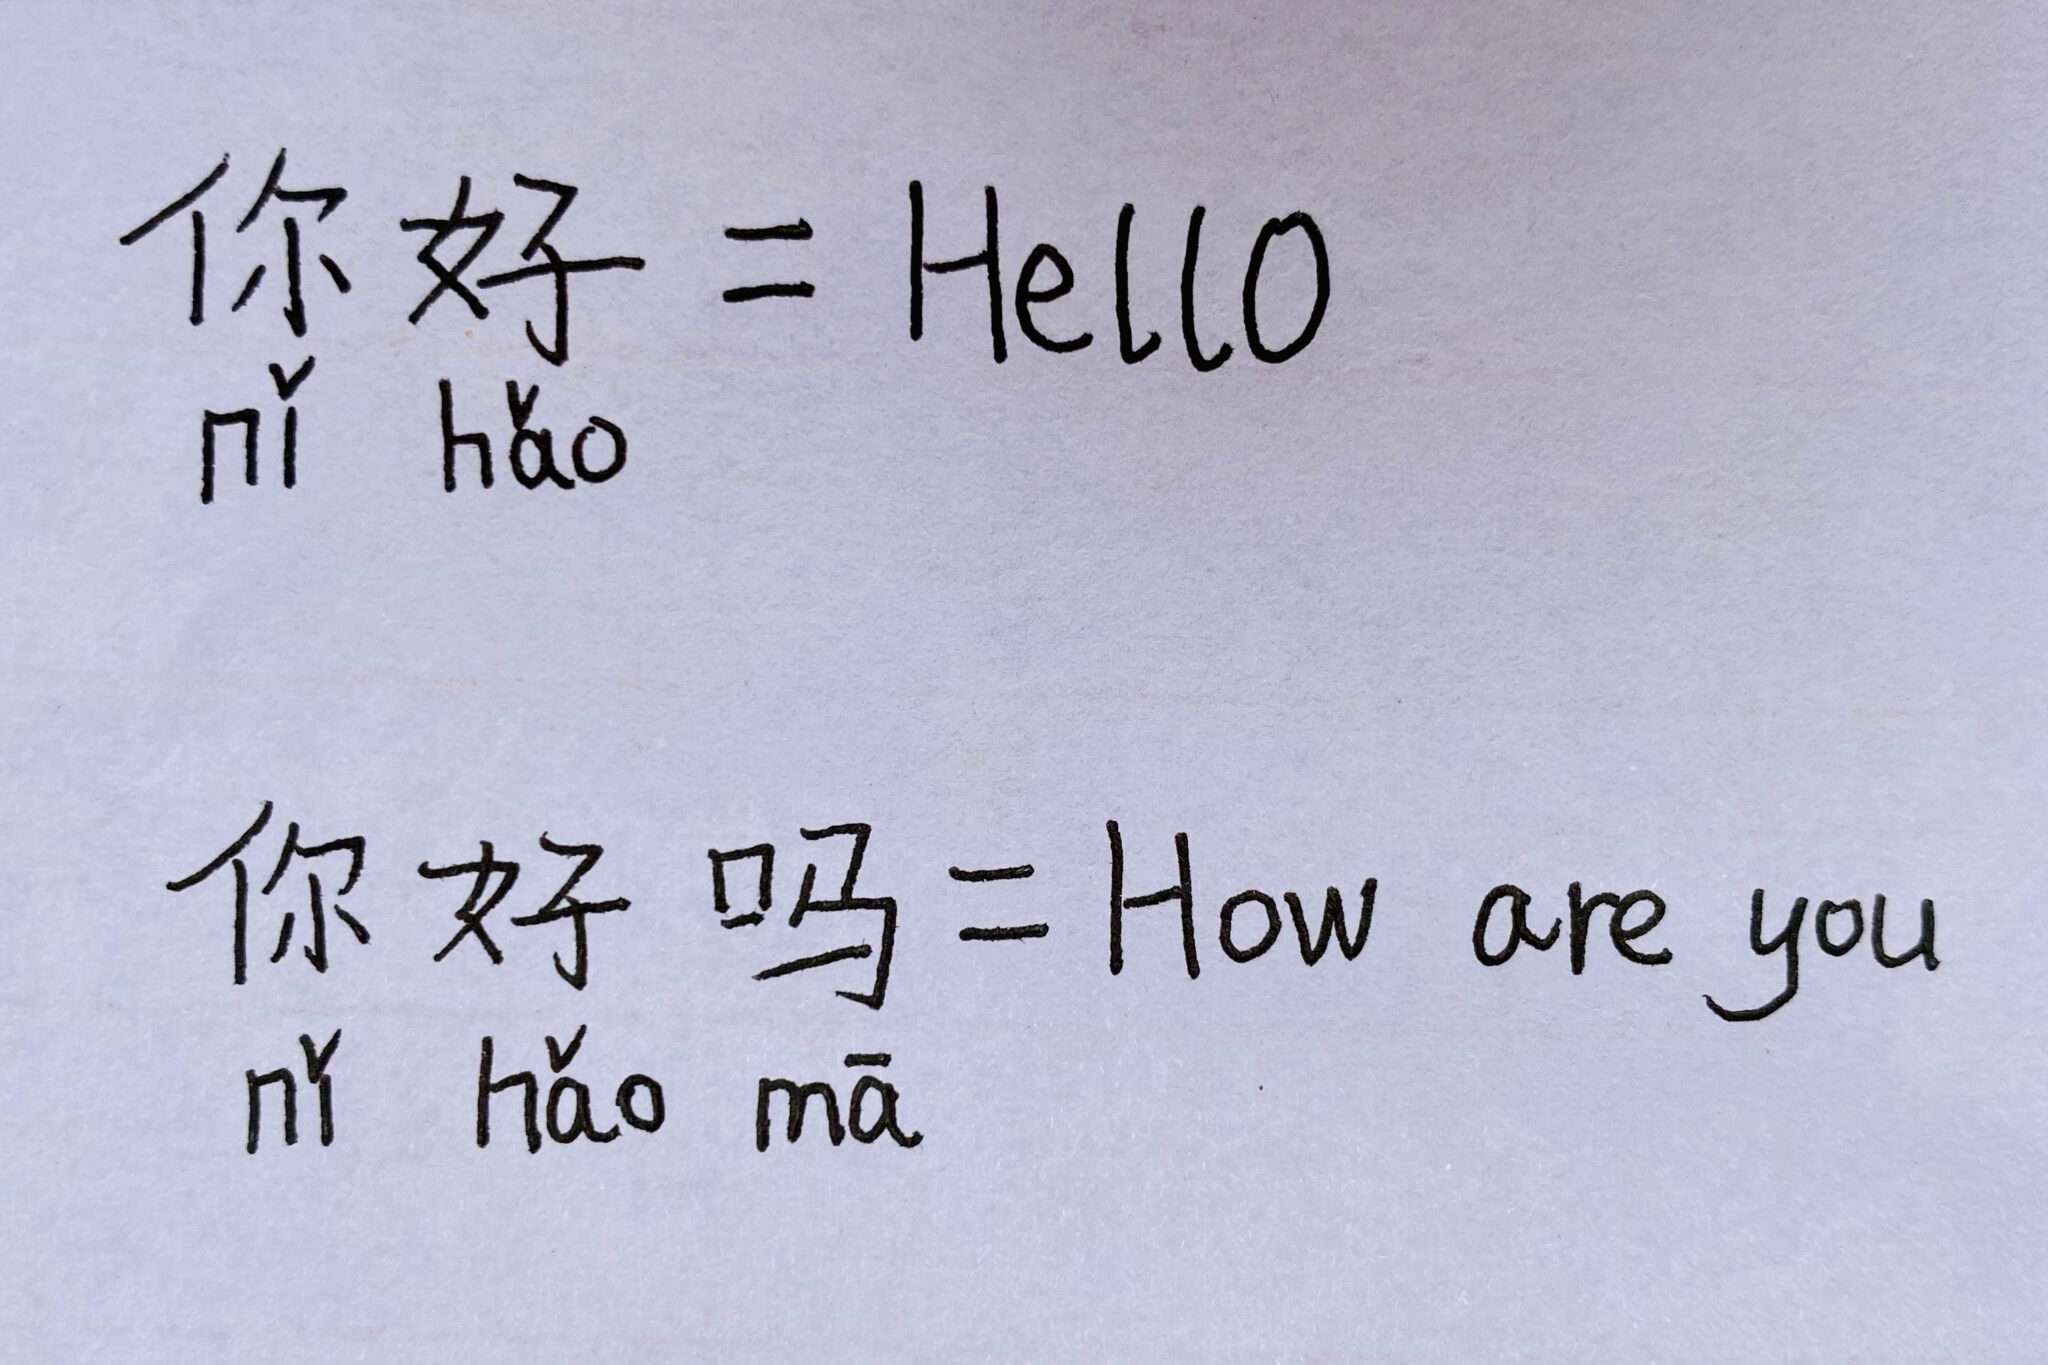 你好 = Hello
nǐ hǎo
你好吗 = How are you
nǐ hǎo mā